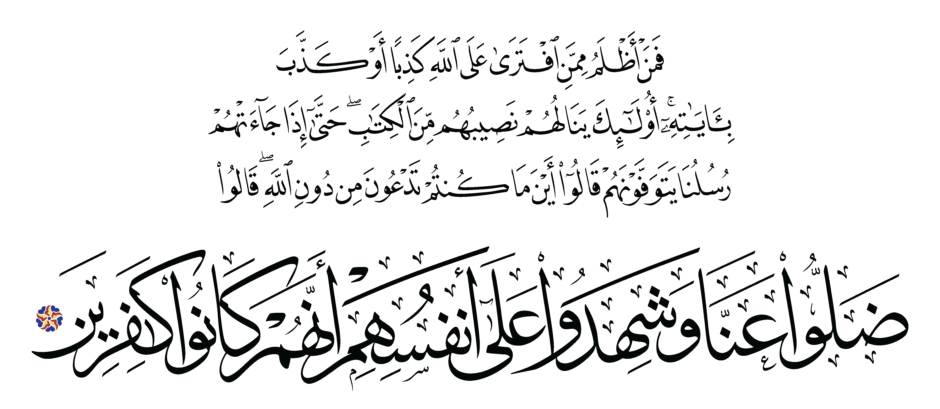 فَمَنْ أَظْلَمُ مِمَّنِ ٱفْتَرَىٰ عَلَى ٱللَّهِ كَذِبًا أَوْ كَذَّبَ
بِـَٔايَـٰتِهِۦٓ ۚ أُو۟لَـٰٓئِكَ يَنَالُهُمْ نَصِيبُهُم مِّنَ ٱلْكِتَـٰبِ ۖ حَتَّىٰٓ إِذَا جَآءَتْهُمْ
رُسُلُنَا يَتَوَفَّوْنَهُمْ قَالُوٓا۟ أَيْنَ مَا كُنتُمْ تَدْعُونَ مِن دُونِ ٱللَّهِ ۖ قَالُوا۟
ضَلُّوا۟ عَنَّا وَشَهِدُوا۟ عَلَىٰٓ أَنفُسِهِمْ أَنَّهُمْ كَانُوا۟ كَـٰفِرِينَ